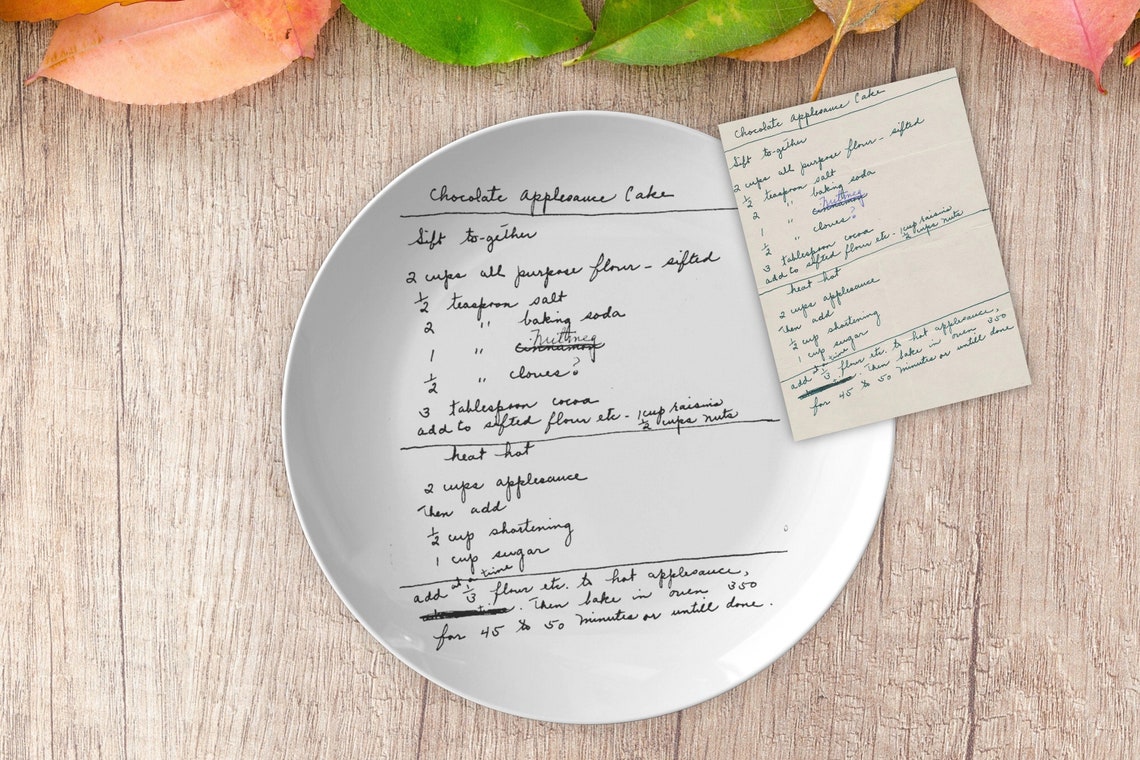 Chocolate Applesauce Cake
Sift to-gether
2 cups all purpose flour - sifted
1/2 teaspoon salt
2 " baking soda
Nuttmeg
1 " Cinnamon
1/2 " cloves?
3 tablespoon cocoa
add to sifted flour etc - 1 cup raisins
1/2 cups nuts
heat hot
2 cups applesauce
Then add
1/2 cup shortening
1 cup sugar
at a time
add 1/3 flour etc. to hot applesauce,
. Then bake in oven 350
for 45 to 50 minutes or untill done.
Chocolate Applesauce Cake
Sift to-gether
2 cups all purpose flour - sifted
1/2 teaspoon salt
2 " baking soda
Nuttmeg
1 " Cinnamon
1/2 " cloves?
3 tablespoon cocoa
add to sifted flour etc - 1 cup raisins
1/2 cups nuts
heat hot
2 cups applesauce
Then add
1/2 cup shortening
1 cup sugar
at a time
add 1/3 flour etc. to hot applesauce,
. Then bake in oven 350
for 45 to 50 minutes or untill done